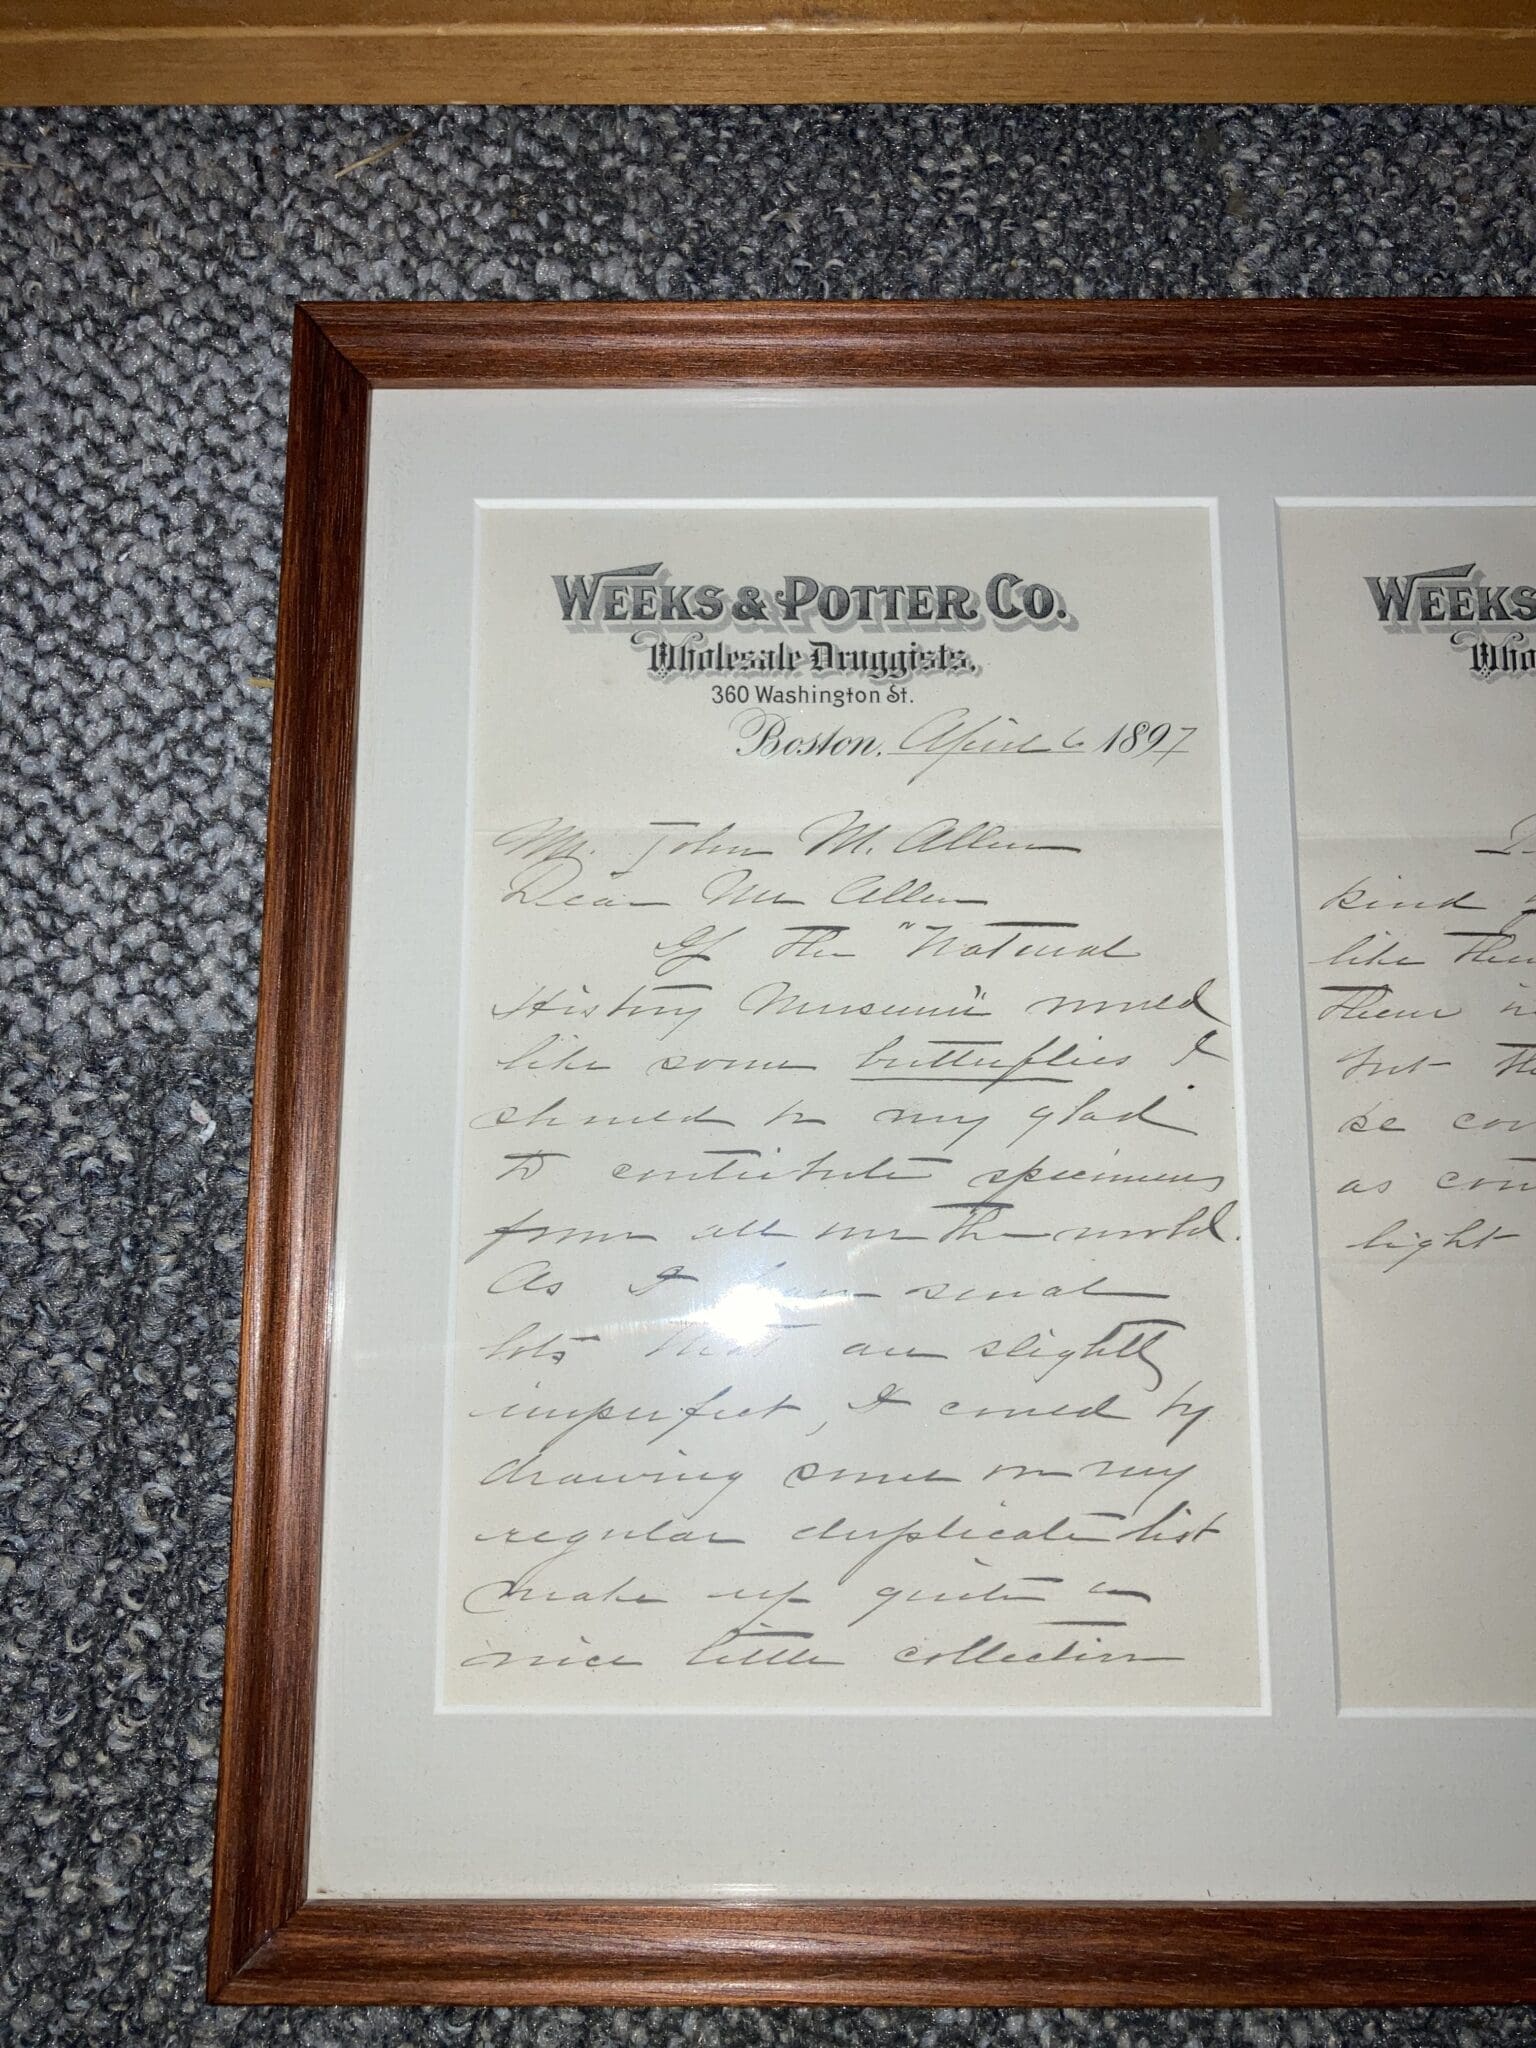 WEEKS & POTTER CO.
Wholesale Druggists.
360 Washington St.
Boston, April 6 1897
Mr. John M. Allen
Dear Mr Allen
If the "Natural
History Museum" would
like some butterflies I
should be very glad
to contribute specimens
from all over the world.
As I have several
lots that are slightly
imperfect, I could by
drawing some on my
regular duplicate list
make up quite a
nice little collection
WEEKS
Who
kind
like them
them in
but the
be
as
light